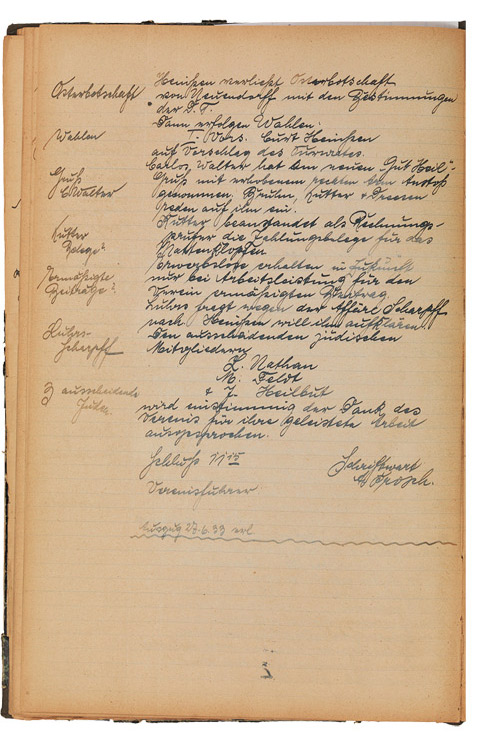 Heinsen verliest Osterbotschaft
Osterbotschaft von Neuendorff mit den Bestimmungen
der D.T.
Dann erfolgen Wahlen:
Wahlen I. Vors. Curt Heinsen
auf Vorschlag des Turnrates.
Carlos Walter hat am neuen „Gut Heil“-
Gruß Gruß mit erhobenem rechten Arm Anstoß
C Walter genommen. Bruhn, Kutter & Dreesen
reden auf ihn ein.
Kutter Kutter beanstandet als Rechnungs-
Belege? prüfer die Zahlungsbelege für das
Mattenklopfen.
Ermäßigte Erwerbslose erhalten in Zukunft
Beiträge? nur bei Arbeitsleistung für den
Verein ermäßigten Beitrag.
Lührs- Lührs fragt wegen der Affäre Scharpff
Scharpff nach. Heinsen will ihn aufklären.
Den ausscheidenden jüdischen
Mitgliedern
L. Nathan
M. Feldt
3 ausscheidende & J. Heilbut
Juden wird einstimmig der Dank des
Vereins für ihre geleistete Arbeit
ausgesprochen.
Schluß 11 15 Schriftwart
Vereinsführer
Auszug 27.6.39 erl.